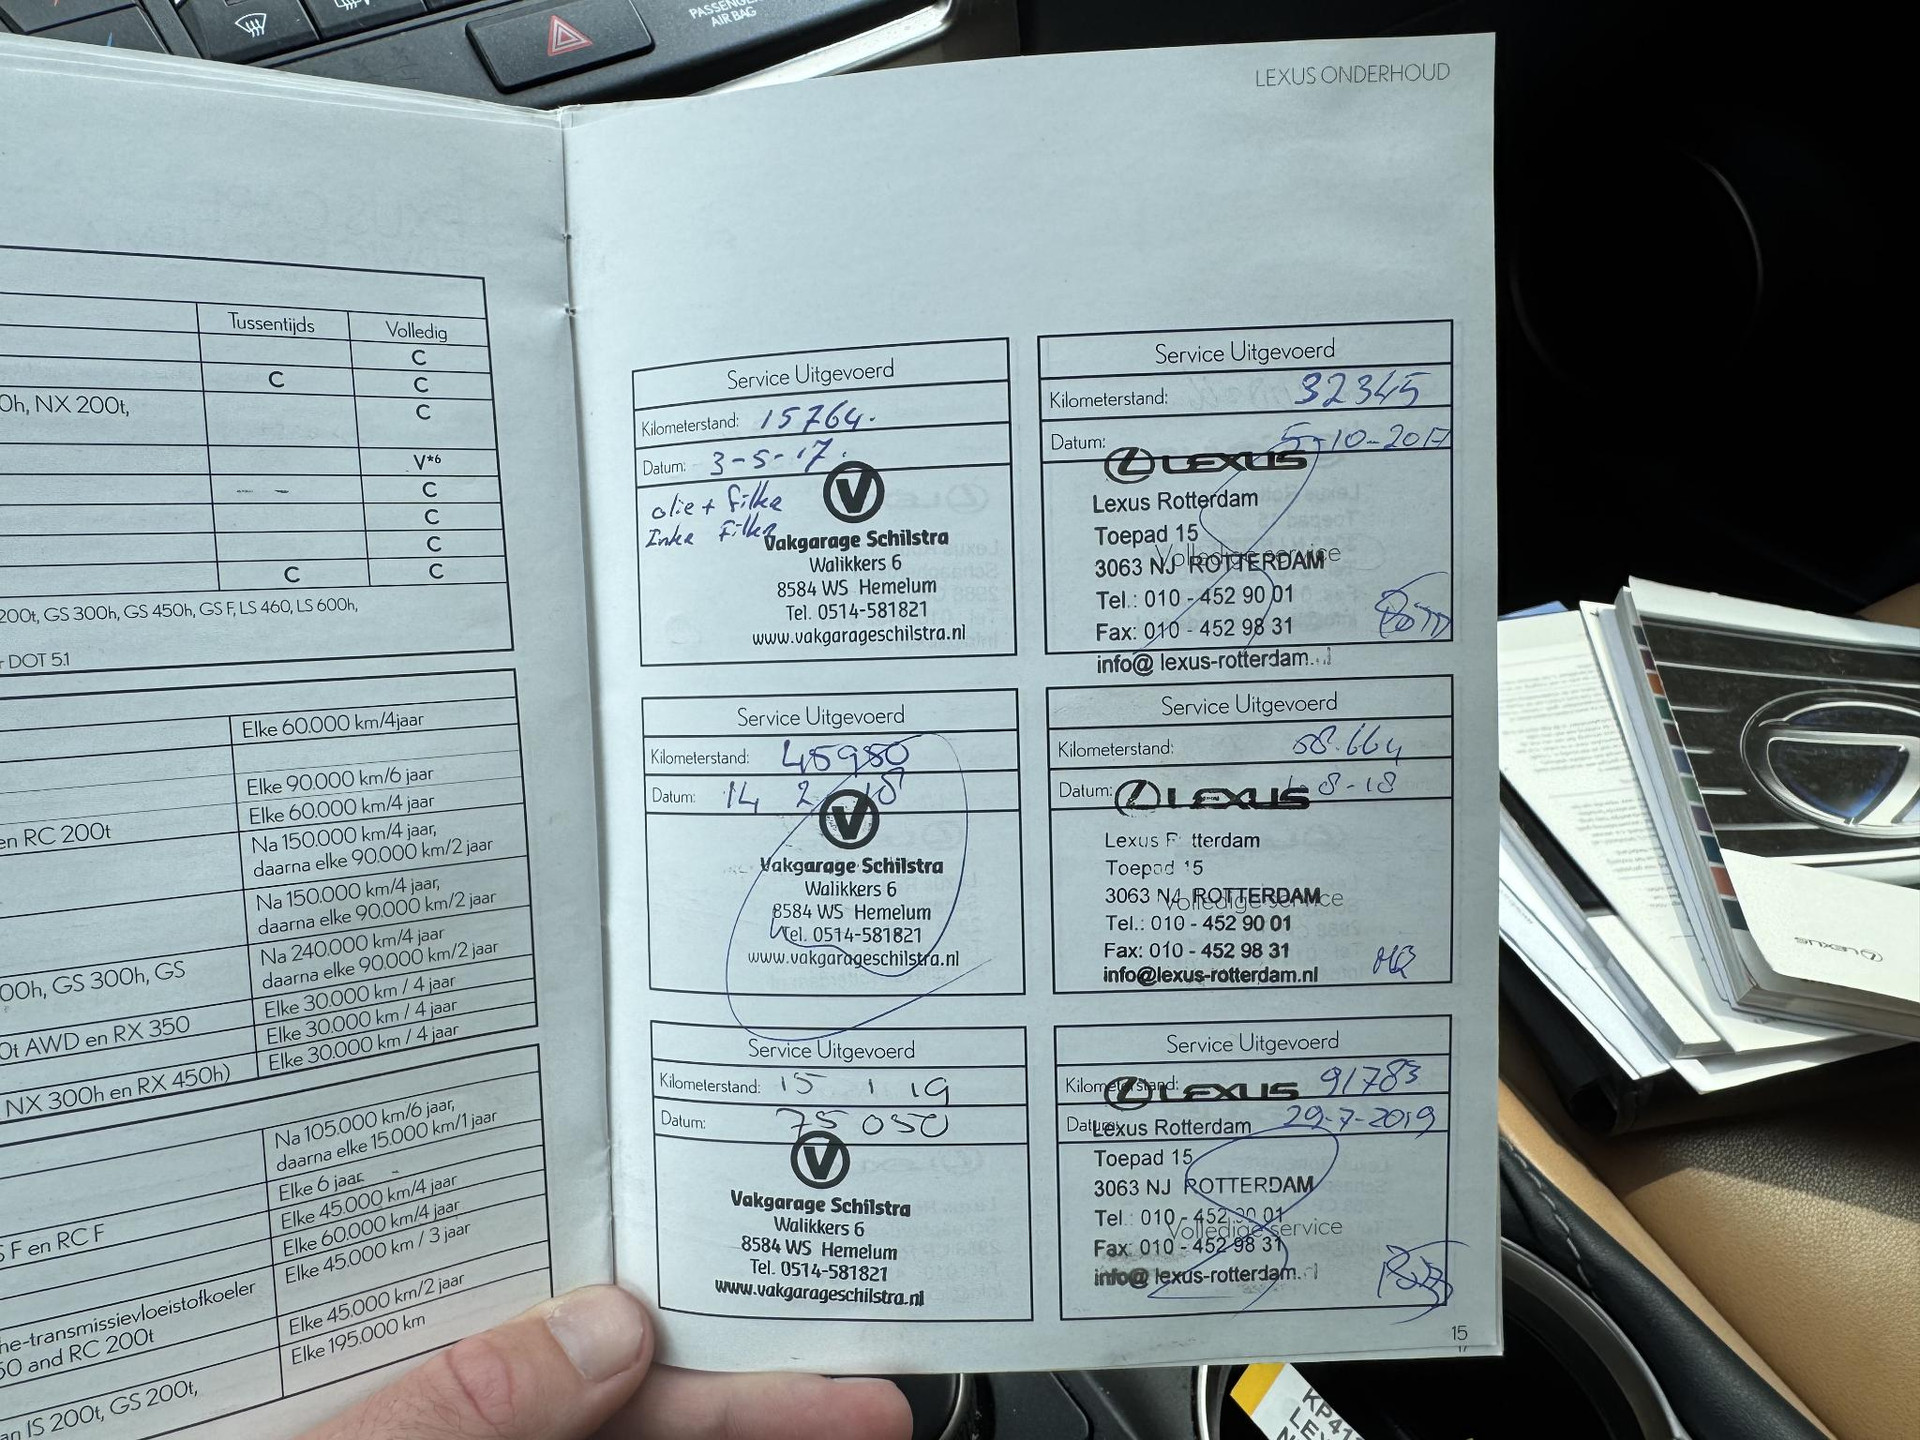 PASSENGER
AIR BAG
LEXUS ONDERHOUD
Tussentijds
Volledig
C
C
C
0h, NX 200t,
C
V*6
C
C
C
C
C
200t, GS 300h, GS 450h, GS F, LS 460, LS 600h,
DOT 5.1
Elke 60.000 km/4jaar
Elke 90.000 km/6 jaar
Elke 60.000 km/4 jaar
en RC 200t
Na 150.000 km/4 jaar,
daarna elke 90.000 km/2 jaar
Na 150.000 km/4 jaar,
daarna elke 90.000 km/2 jaar
Na 240.000 km/4 jaar
daarna elke 90.000 km/2 jaar
00h, GS 300h, GS
Elke 30.000 km / 4 jaar
0t AWD en RX 350
Elke 30.000 km / 4 jaar
NX 300h en RX 450h)
Elke 30.000 km / 4 jaar
Na 105.000 km/6 jaar,
daarna elke 15.000 km/1 jaar
Elke 6 jaar
F en RC F
Elke 45.000 km/4 jaar
Elke 60.000 km/4 jaar
Elke 45.000 km / 3 jaar
he-transmissievloeistofkoeler
50 and RC 200t
Elke 45.000 km/2 jaar
Elke 195.000 km
an IS 200t, GS 200t,
Service Uitgevoerd
Kilometerstand: 15764.
Datum: 3-5-17.
olie + filter
V
Vakgarage Schilstra
Walikkers 6
8584 WS Hemelum
Tel. 0514-581821
www.vakgarageschilstra.nl
Service Uitgevoerd
Kilometerstand: 32345
Datum: 5-10-2017
LEXUS
Lexus Rotterdam
Toepad 15
Volledige service
3063 NJ ROTTERDAM
Tel.: 010 - 452 90 01
Fax: 010 - 452 98 31
info@ lexus-rotterdam.
Service Uitgevoerd
Kilometerstand: 45950
Datum: 14 2 18
V
Vakgarage Schilstra
Walikkers 6
8584 WS Hemelum
Tel. 0514-581821
www.vakgarageschilstra.nl
Service Uitgevoerd
Kilometerstand: 58.664
Datum: 8-18
LEXUS
Lexus R tterdam
Toepad 15
3063 NJ ROTTERDAM
Volledige service
Tel.: 010 - 452 90 01
Fax: 010 - 452 98 31
info@lexus-rotterdam.nl
Service Uitgevoerd
Kilometerstand: 15 1 19
Datum: 75 050
V
Vakgarage Schilstra
Walikkers 6
8584 WS Hemelum
Tel. 0514-581821
www.vakgarageschilstra.nl
Service Uitgevoerd
Kilometerstand: 91783
LEXUS
Datum: 29-7-2019
Lexus Rotterdam
Toepad 15
3063 NJ ROTTERDAM
Tel.: 010 - 452 90 01
Volledige service
Fax: 010 - 452 98 31
info@ lexus-rotterdam.
15
LEXUS
KP41
LE